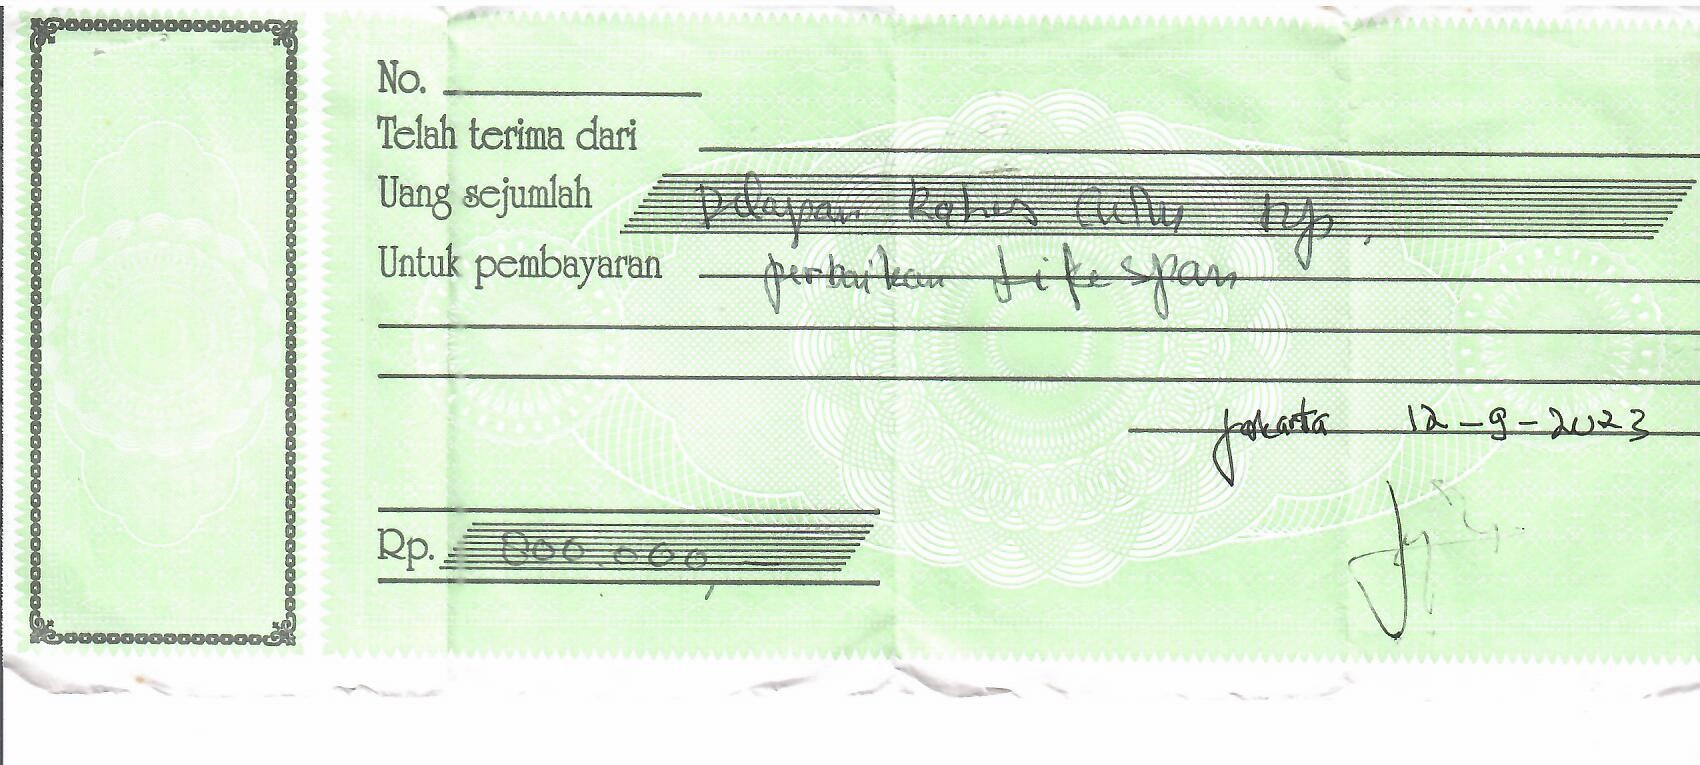 No.
Telah terima dari
Uang sejumlah Delapan Ratus Ribu Rp.
Untuk pembayaran perbaikan
Jakarta 12-9-2023
Rp. 800.000,-